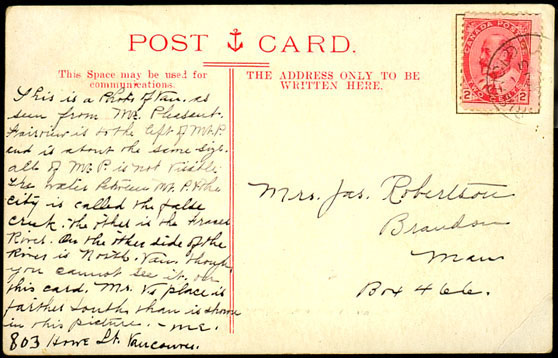 POST CARD.
This Space may be used for
communications.
THE ADDRESS ONLY TO BE
WRITTEN HERE.
CANADA POSTAGE
2 2
This is a Photo of Van. as
seen from Mt. Pleasant.
Fairview is to the left of Mt. P.
and is about the same size.
all of Mt. P. is not visible.
The water between Mt. P. & the
city is called the false
creek. The other is the Fraser
River. On the other side of the
River is North. Van. though
you cannot see it. on
this card. Mr. V's place is
farther South than is shown
in this picture. - M.E.
803 Howe St. Vancouver.
Mrs. Jas. Robertson
Brandon
Man
Box 466.